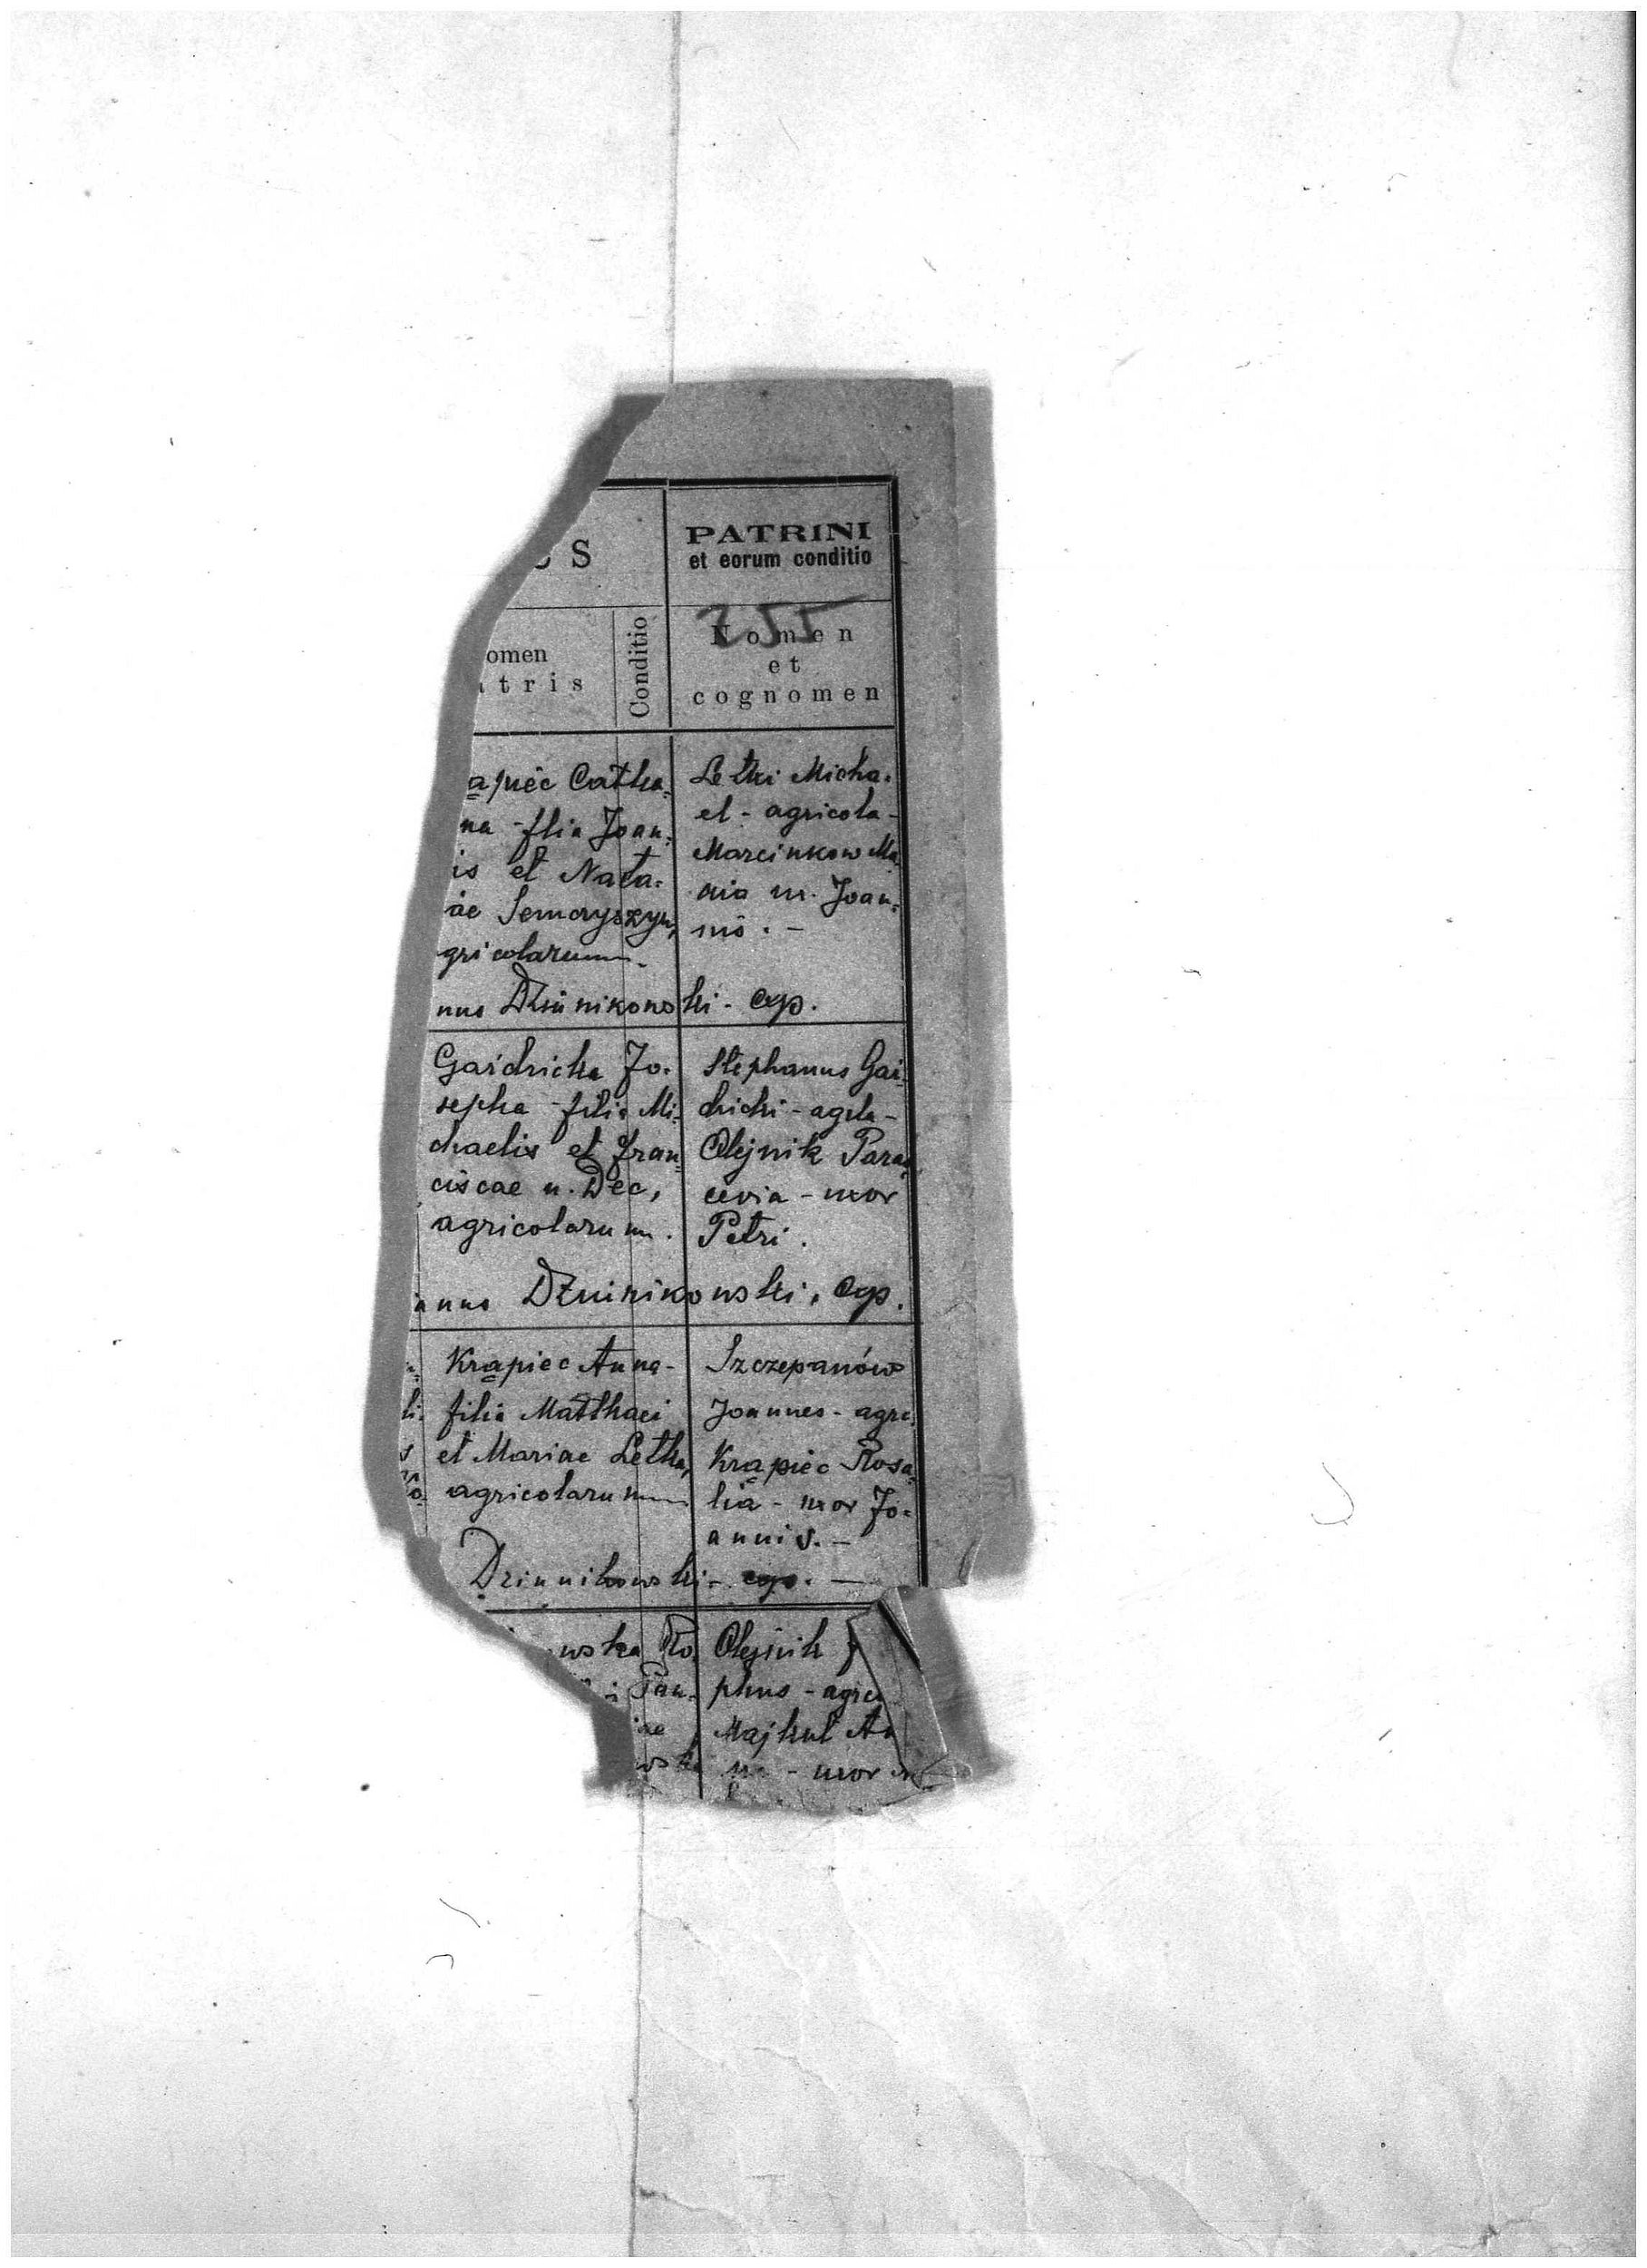 S
PATRINI
et eorum conditio
255
omen
tris
Conditio
Nomen
et
cognomen
apiec Catha=
na - filia Joan=
is et Nata=
ae Semczyszyn,
gricolarum.
Letki Micha=
el - agricola -
Marcinkow Ma=
ria ux. Joan=
nis. -
nus Dźwinikowski - cop.
Gaidricka Jo=
sepha filia Mi=
chaelis et Fran=
ciscae n. Dec,
agricolarum.
Stephanus Gai=
dricki - agrla -
Olejnik Paras=
cevia - uxor
Petri.
annus Dźwinikowski, Cop.
Krąpiec Anna -
filia Matthaei
et Mariae Letka,
agricolarum
Szczepanów
Joannes - agri.
Krąpiec Rosa=
lia - uxor Jo=
annis. -
Dzinnikowski - cop. -
wska Ro.
Pan=
ae
wsk
Olejnik
phus - agric
Majkut An
na - uxor